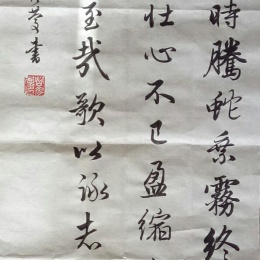 時騰蛇乗霧終
壮心不已盈缩
至哉歌以詠志
書